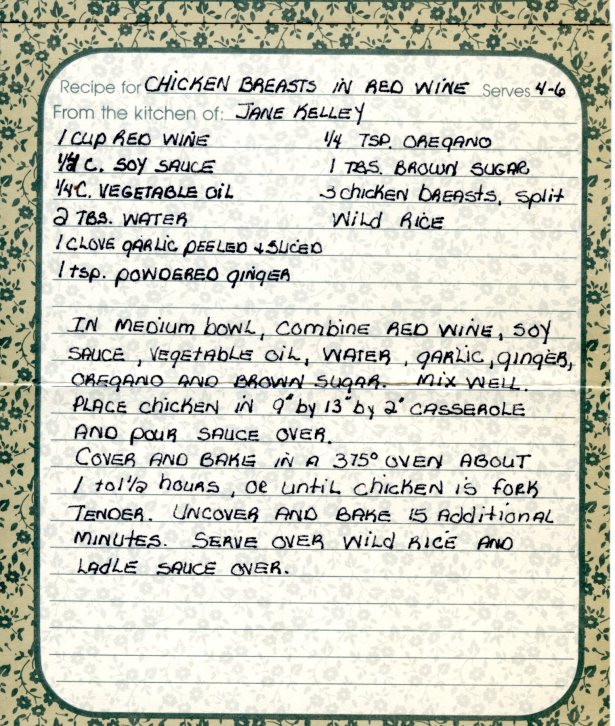 Recipe for CHICKEN BREASTS IN RED WINE Serves 4-6
From the kitchen of: JANE KELLEY
1 CUP RED WINE 1/4 TSP. OREGANO
C. SOY SAUCE 1 TBS. BROWN SUGAR
1/4 C. VEGETABLE OIL 3 CHICKEN BREASTS, SPLIT
2 TBS. WATER WILD RICE
1 CLOVE GARLIC PEELED & SLICED
1 TSP. POWDERED GINGER
IN MEDIUM BOWL, COMBINE RED WINE, SOY
SAUCE, VEGETABLE OIL, WATER, GARLIC, GINGER,
OREGANO AND BROWN SUGAR. MIX WELL.
PLACE CHICKEN IN 9" by 13" by 2" CASSEROLE
AND POUR SAUCE OVER.
COVER AND BAKE IN A 375° OVEN ABOUT
1 to 1 1/2 HOURS, OR UNTIL CHICKEN IS FORK
TENDER. UNCOVER AND BAKE 15 ADDITIONAL
MINUTES. SERVE OVER WILD RICE AND
LADLE SAUCE OVER.